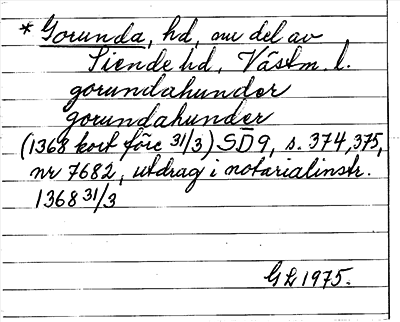 * Gorunda, hd, nu del av
Siende hd, Västm. l.
gorundahundor
gorundahunder
(1368 kort före 31/3) SD 9, s. 374, 375,
nr 7682, utdrag i notarialinstr.
1368 31/3
GL 1975.